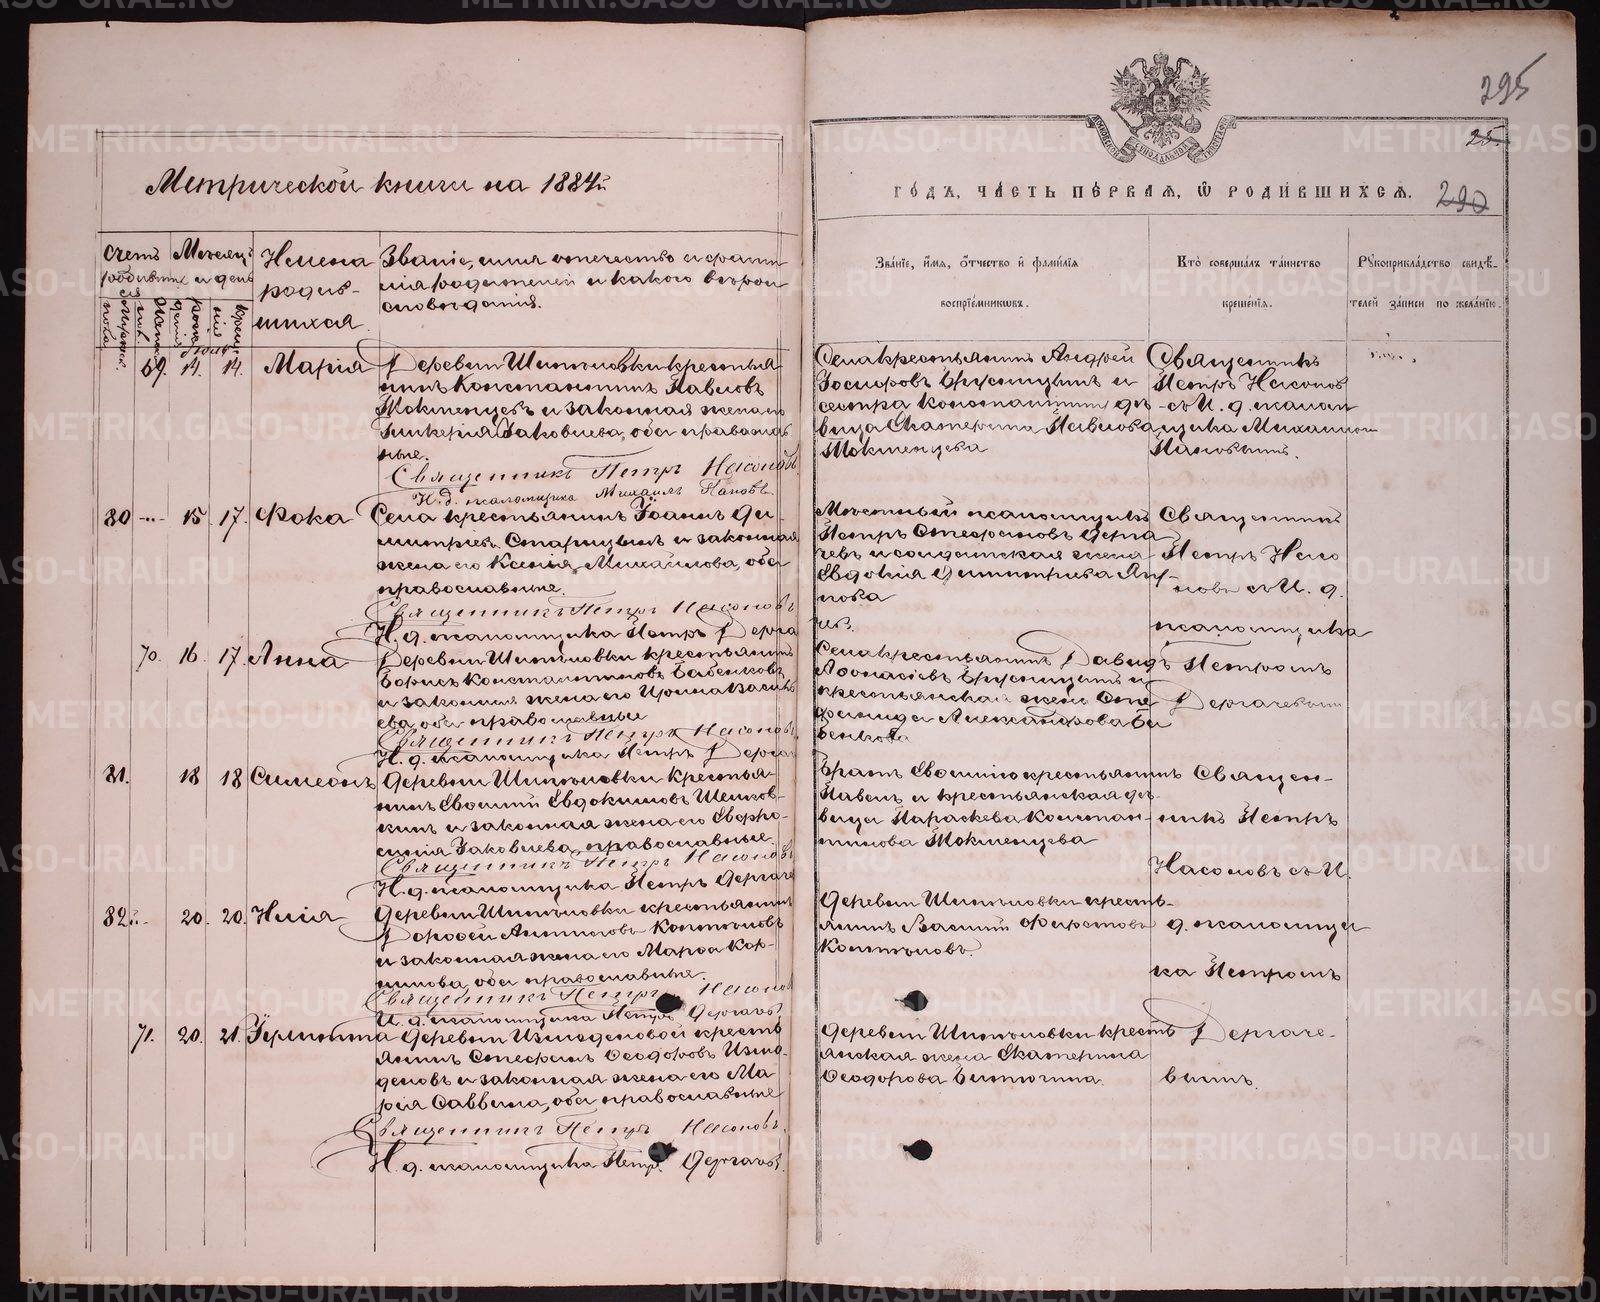 295
25.
Метрической книги на 1884й
годъ, часть первая, ѿ родившихся.
290
Счетъ
родившихся
Мѣсяцъ
и день
Имена
родив-
шихся
Званіе, имя отчество и фами-
лія родителей и какого вѣрои-
сповѣданія.
Званіе, имя, отчество и фамилія
воспріемниковъ.
Кто совершалъ таинство
крещенія.
Рукоприкладство свидѣ-
телей записи по желанію.
69. 14. 14. Марія
Деревни Шипѣловки крестья
нинъ Константинъ Павловъ
Токменцевъ и законная жена его
Гликерія Іаковлева, оба православ
ные.
Священникъ Петръ Насоновъ
И. д. псаломщика Михаилъ Пановъ
Села крестьянинъ Андрей
сестра Константина дѣ-
вица Екатерина Павлова
Токменцева
Священникъ
Петръ Насонов
съ И. д. псалом
щика Михаилом
Пановымъ.
80 15 17. Фока
Села крестьянинъ Іоаннъ Ди-
митріевъ Старицынъ и законная
жена его Ксенія Михайлова, оба
православные.
Священникъ Петръ Насоновъ
И. д. псаломщика Петръ Дерга
чев.
Мѣстный псаломщикъ
Петръ Стефановъ Дерга
чевъ и солдатская жена
Евдокія Димитріева
Священникъ
Петръ Насо
новъ съ И. д.
псаломщика
Петромъ
Дергачевымъ
70. 16 17 Анна
Деревни Шипѣловки крестьянинъ
Борисъ Константиновъ Бабенковъ
и законная жена его Ирина Василь
ева, оба православные
Священникъ Петръ Насоновъ
И. д. псаломщика Петръ Дергач
Села крестьянинъ Давидъ
крестьянская жена Сте
фанида Александрова Ба
бенкова
81. 18 18 Симеонъ
Деревни Шипѣловки крестья-
нинъ Евдокимовъ
и законная жена его Евфро-
синія Іаковлева, православные.
Священникъ Петръ Насоновъ
И. д. псаломщика Петръ Дергаче
Братъ крестьянинъ
Павелъ и крестьянская дѣ-
вица Параскева Констан-
тинова Токменцева
Священ-
никъ Петръ
Насоновъ съ И.
д. псаломщи
ка Петромъ
Дергаче-
вымъ.
82. 20. 20. Илія
Деревни Шипѣловки крестьянинъ
Дорофей Антиповъ
и законная жена его Марѳа Кор-
нилова, оба православные.
Священникъ Петръ Насонов
И. д. псаломщика Петръ Дергачев
Деревни Шипѣловки кресть-
янинъ Василій
71. 20. 21.
Деревни Измоденовой кресть
янинъ Стефанъ Ѳеодоровъ Измо-
деновъ и законная жена его Ма-
рія Саввина, оба православные
Священникъ Петръ Насоновъ.
И. д. псаломщика Петръ Дергачевъ.
Деревни Шипѣловки кресть
янская жена Екатерина
Ѳеодорова
METRIKI.GASO-URAL.RU